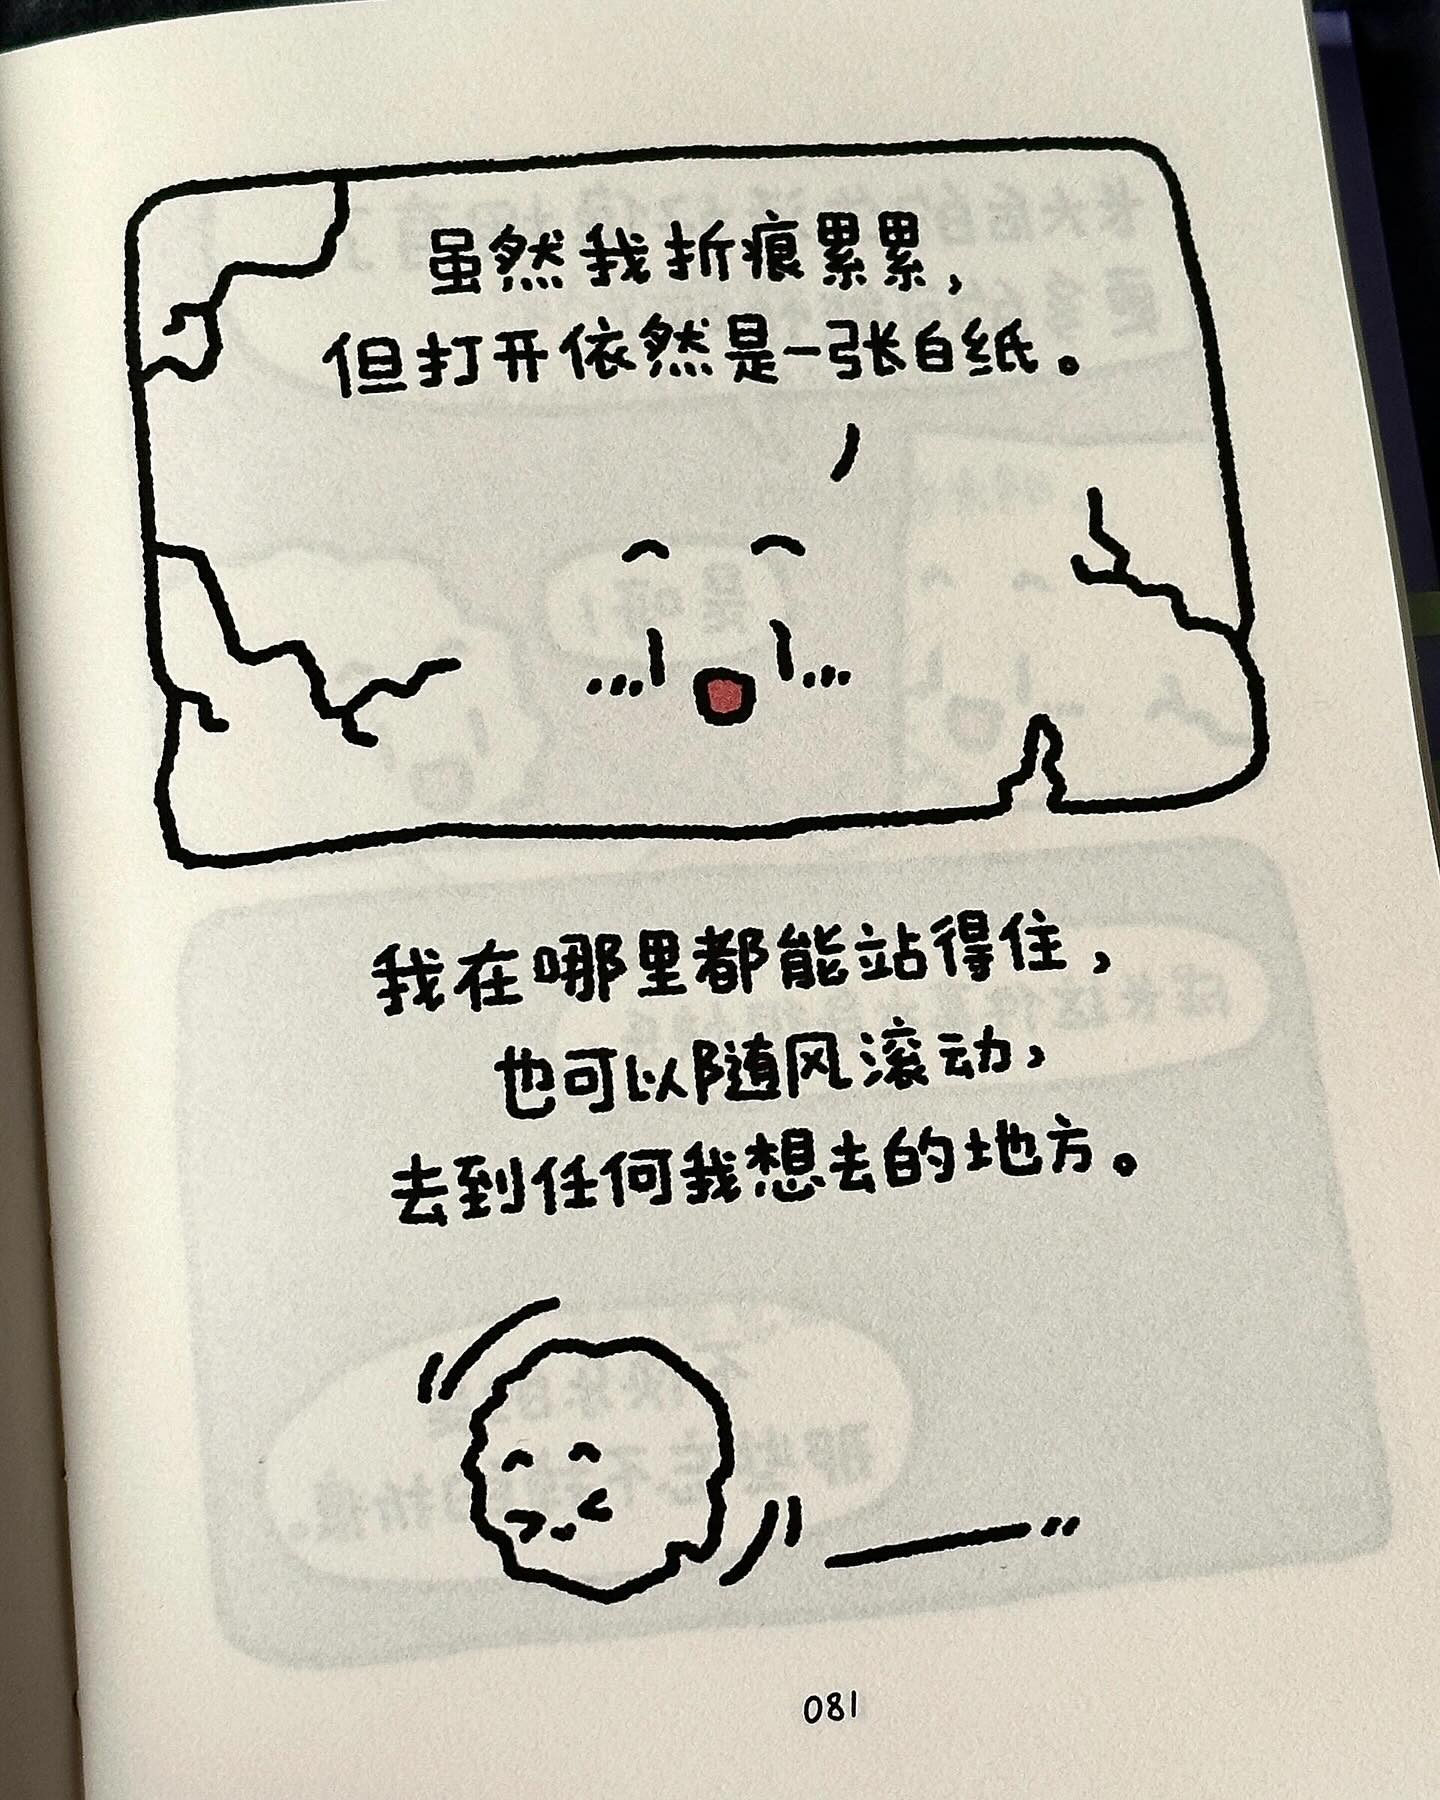 虽然我折痕累累，
但打开依然是一张白纸。
我在哪里都能站得住，
也可以随风滚动，
去到任何我想去的地方。
081